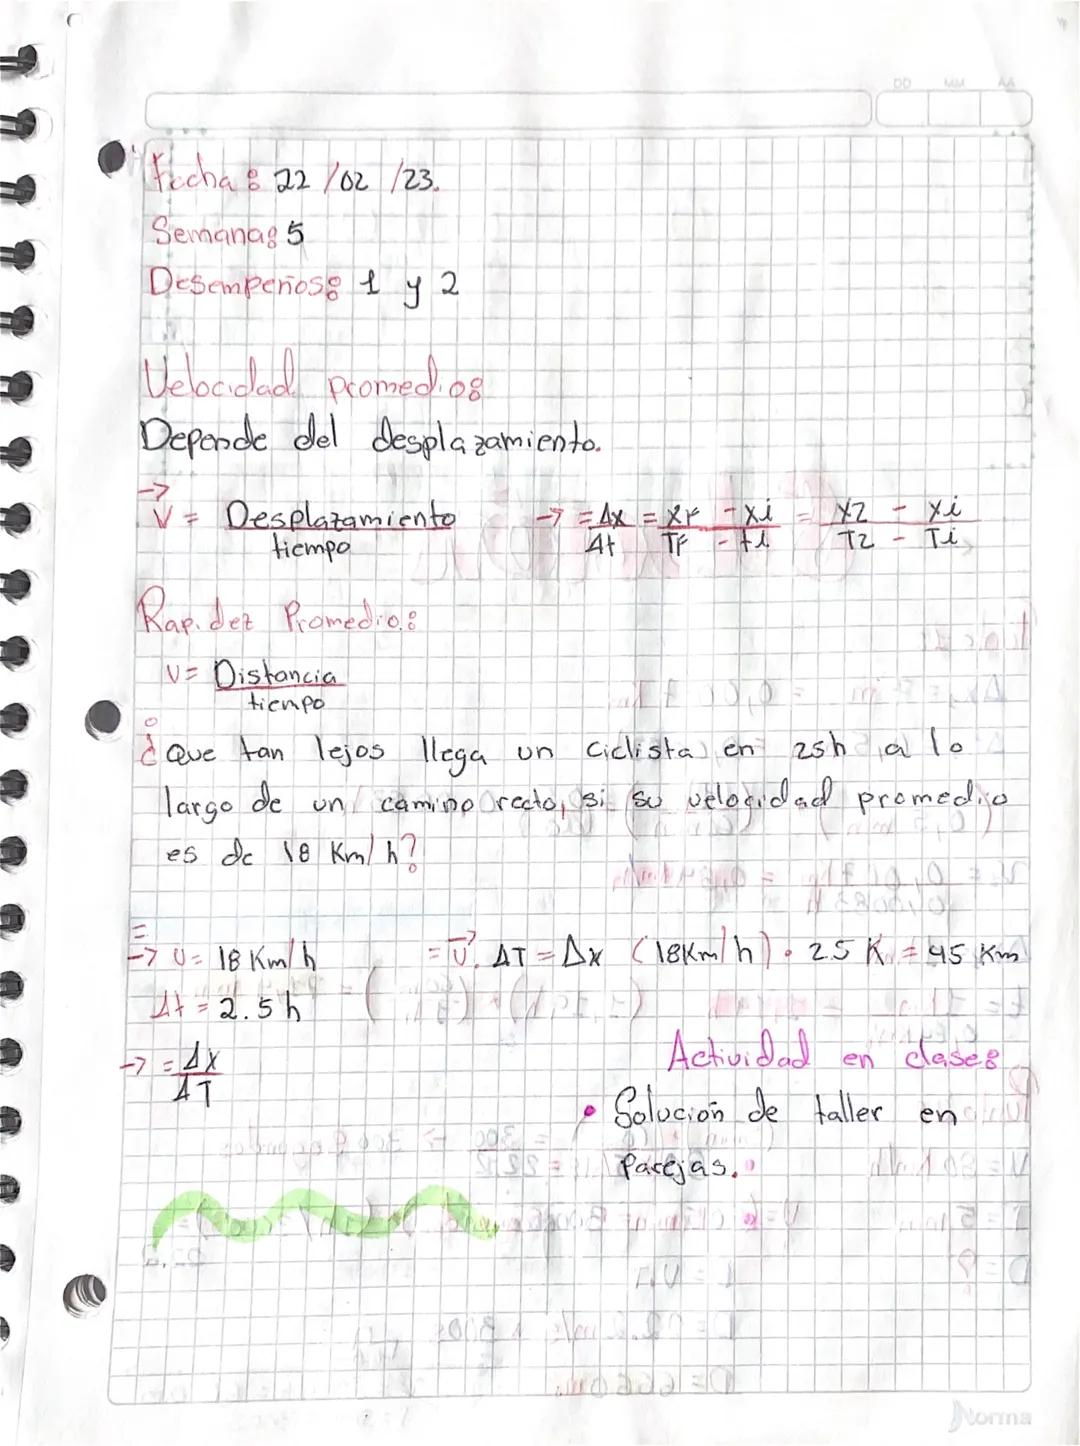 DD MM AA
Fecha: 22/02/23.
Semana: 5
Desempeños: 1 y 2
Velocidad promedio:
Depende del desplazamiento.
→
V = Desplazamiento / tiempo → = Δx / Δt = xF - xi / TF - ti = x2 - xi / T2 - Ti
Rapidez Promedio:
V = Distancia / tiempo
¿Que tan lejos llega un ciclista en 25h a lo
largo de un camino recto, si su velocidad promedio
es de 18 Km/h?
→ V = 18 Km/h = V⃗. ΔT = Δx (18Km/h) . 2.5 K = 45 Km
Δt = 2.5 h
→ = Δx / ΔT
Actividad en clase:
• Solución de taller en
parejas.
Norma